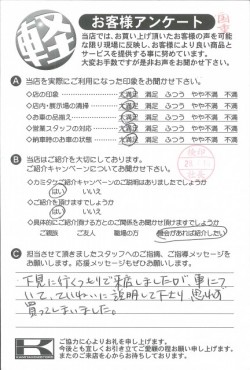 軽
お客様アンケート
当店では、お買い上げ頂いたお客様の声を可能
な限り現場に反映し、お客様により良い商品と
サービスを提供する事に努めています。
大変お手数ですが是非お声をお聞かせ下さい。
A 当店を実際にご利用になった印象をお聞かせ下さい。
◇店の印象 大満足 満足 ふつう やや不満 不満
◇店内・展示場の清掃 大満足 満足 ふつう やや不満 不満
◇お車の品揃え 大満足 満足 ふつう やや不満 不満
◇営業スタッフの対応 大満足 満足 ふつう やや不満 不満
◇納車時のお車の状態 大満足 満足 ふつう やや不満 不満
B 当店はご紹介を大切にしております。
ご紹介キャンペーンについてお聞かせ下さい。
◇カミタケご紹介キャンペーンのご説明はありましたでしょうか
はい いいえ
◇ご紹介キャンペーンにご協力頂けますでしょうか
はい いいえ
◇具体的にご紹介頂ける方との関係をお聞かせ頂けますでしょうか
ご親族 ご友人 職場の方 機会があれば紹介したい
C 担当させて頂きましたスタッフへのご指摘、ご指導メッセージを
お願いします。応援メッセージもぜひお願いします。
下見に行くつもりで来店しましたが、車につ
いて、ていねいに説明して下さり
買ってしまいました。
K
ご協力に心よりお礼を申し上げます。
今後とも宜しくお引き立てご愛顧の程お願い申し上げます。
またのご来店を心からお待ちしております。